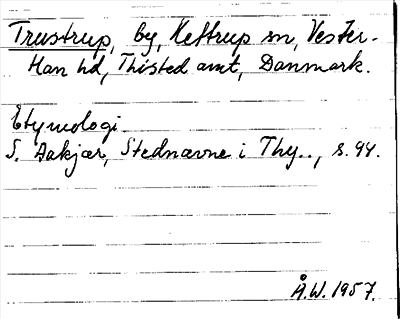 Trustrup, by, Kettrup sn, Vester-
Han hd, Thisted amt, Danmark.
Etymologi
S. Aakjær, Stednavne i Thy.., s. 94.
Å.W. 1957.